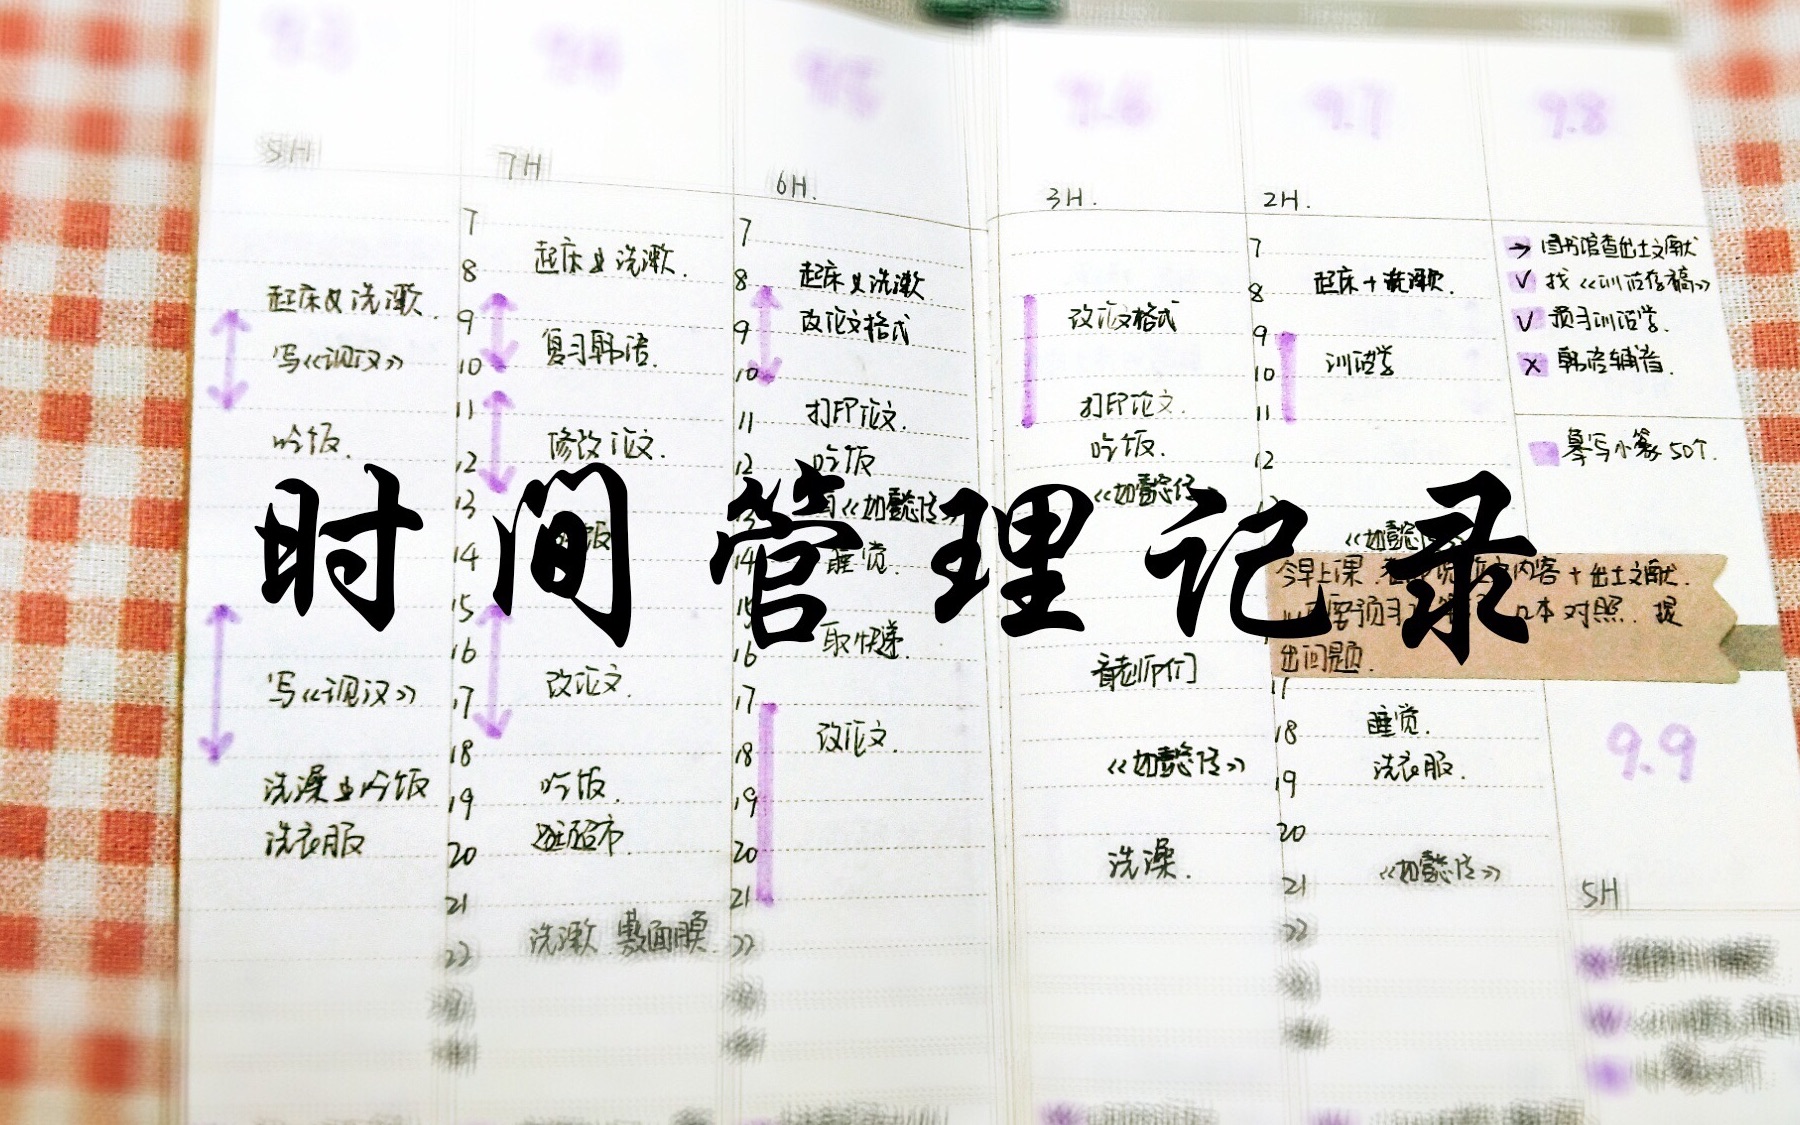 时间管理记录
9.3
5H
起床&洗漱.
写《调汉》
吃饭.
写《调汉》
洗澡&吃饭
洗衣服
9.4
7H
7
8
9
10
11
12
13
14
15
16
17
18
19
20
21
22
起床&洗漱.
复习韩语.
修改论文.
改论文.
吃饭.
逛超市.
洗漱.敷面膜.
9.5
6H.
7
8
9
10
11
12
13
14
15
16
17
18
19
20
21
22
起床&洗漱
改论文格式
打印论文.
吃饭
《如懿传》
睡觉.
取快递.
改论文.
9.6
3H.
改论文格式
打印论文.
吃饭.
《如懿传》
看老师们
《如懿传》
洗澡.
9.7
2H.
7
8
9
10
11
12
18
19
20
21
22
起床+洗漱.
训诂学
《如懿传》
睡觉.
洗衣服.
《如懿传》
9.8
→ 图书馆查出土文献
√ 找《训诂存稿》
√ 预习训诂学.
× 韩语辅音.
摹写小篆50个.
今早上课.
内容+出土文献.
预习
本对照.提
出问题.
9.9
5H